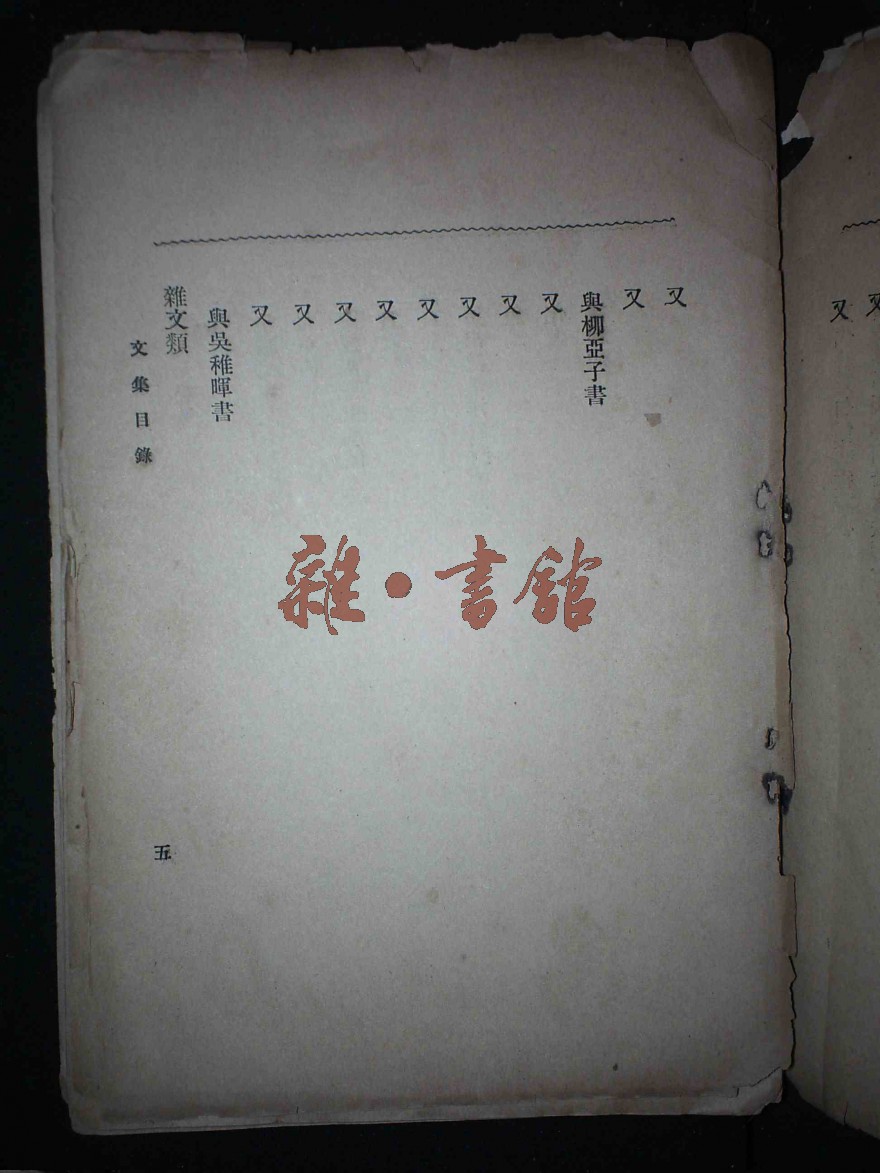 又
又
與柳亞子書
又
又
又
又
又
又
又
又
與吳稚暉書
雜文類
文集目錄
五
雜·書館
又
又